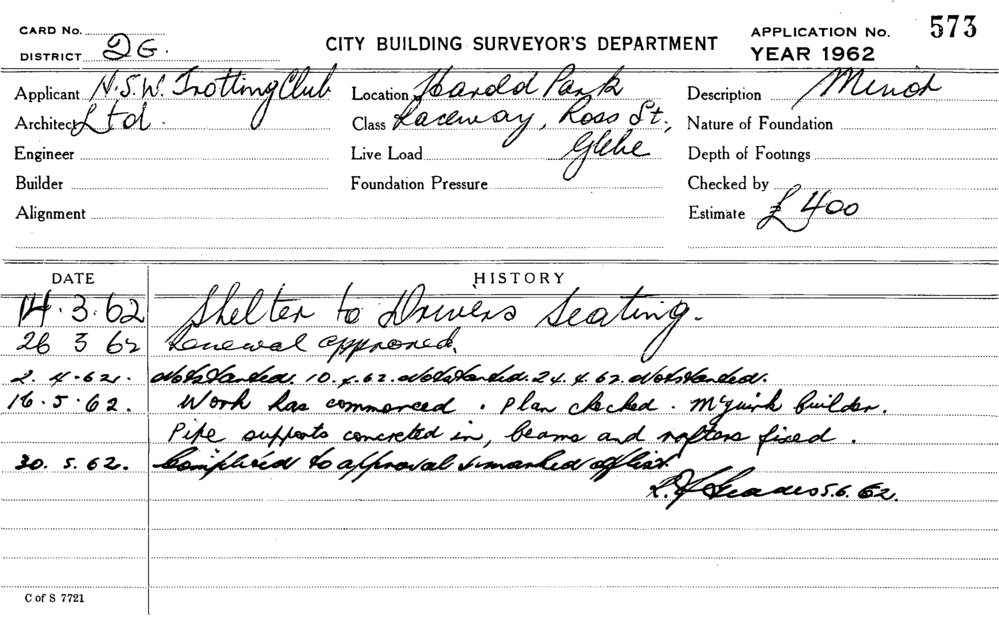 CARD No.
DISTRICT 2G.
CITY BUILDING SURVEYOR'S DEPARTMENT
APPLICATION No. 573
YEAR 1962
Applicant N.S.W. Trotting Club
Location Harold Park
Description Minor
Architect Ltd.
Class Raceway, Ross St.,
Nature of Foundation
Engineer
Live Load Glebe
Depth of Footings
Builder
Foundation Pressure
Checked by
Alignment
Estimate £400
DATE HISTORY
14.3.62 Shelter to Drivers Seating.
26 3 62 Renewal approved.
2.4.62. Not Started. 10.4.62. Not Started. 24.4.62. Not Started.
16.5.62. Work has commenced. Plan checked. McGuirk builder.
Pipe supports concreted in, beams and rafters fixed.
30.5.62. Completed to approval & marked off list
5.6.62.
C of S 7721